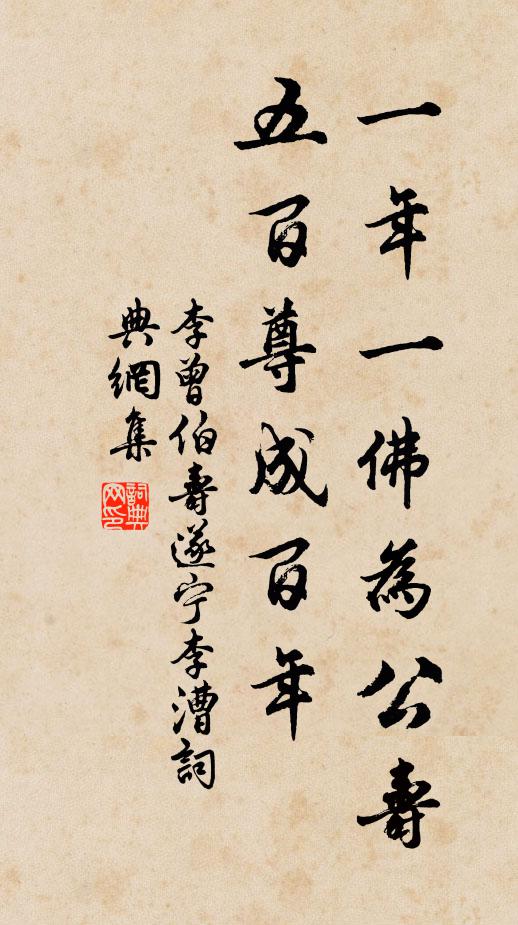 一年一佛為公壽
五百尊成百年
李曾伯壽遂宁李漕詞
典網集
詞典
网印